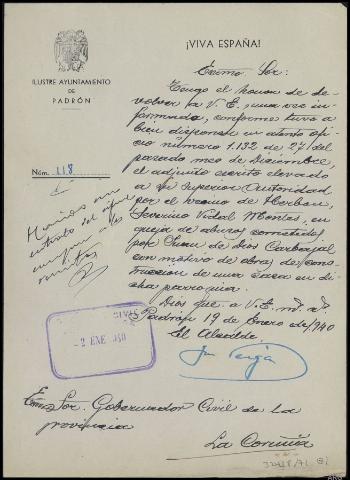 ¡VIVA ESPAÑA!
ILUSTRE AYUNTAMIENTO
DE
PADRÓN
Núm. 118
Excmo Sor:
Tengo el honor de de-
volver a V.E., una vez in-
formada, conforme tuvo a
bien disponer en atento ofi-
cio número 1.132 de 27 del
pasado mes de Diciembre,
el adjunto escrito elevado
a su Superior Autoridad
por el vecino de Herbón,
Severino Vidal Montes, en
queja de abusos cometidos
por Juan de Dios Carbajal
con motivo de obras de cons-
trucción de una casa en di-
cha parroquia.
Dios gue a V.E. m. a.
Padrón 19 de Enero de 1940
El Alcalde,
2 ENE 940
Excmo Sor. Gobernador Civil de la
provincia
La Coruña